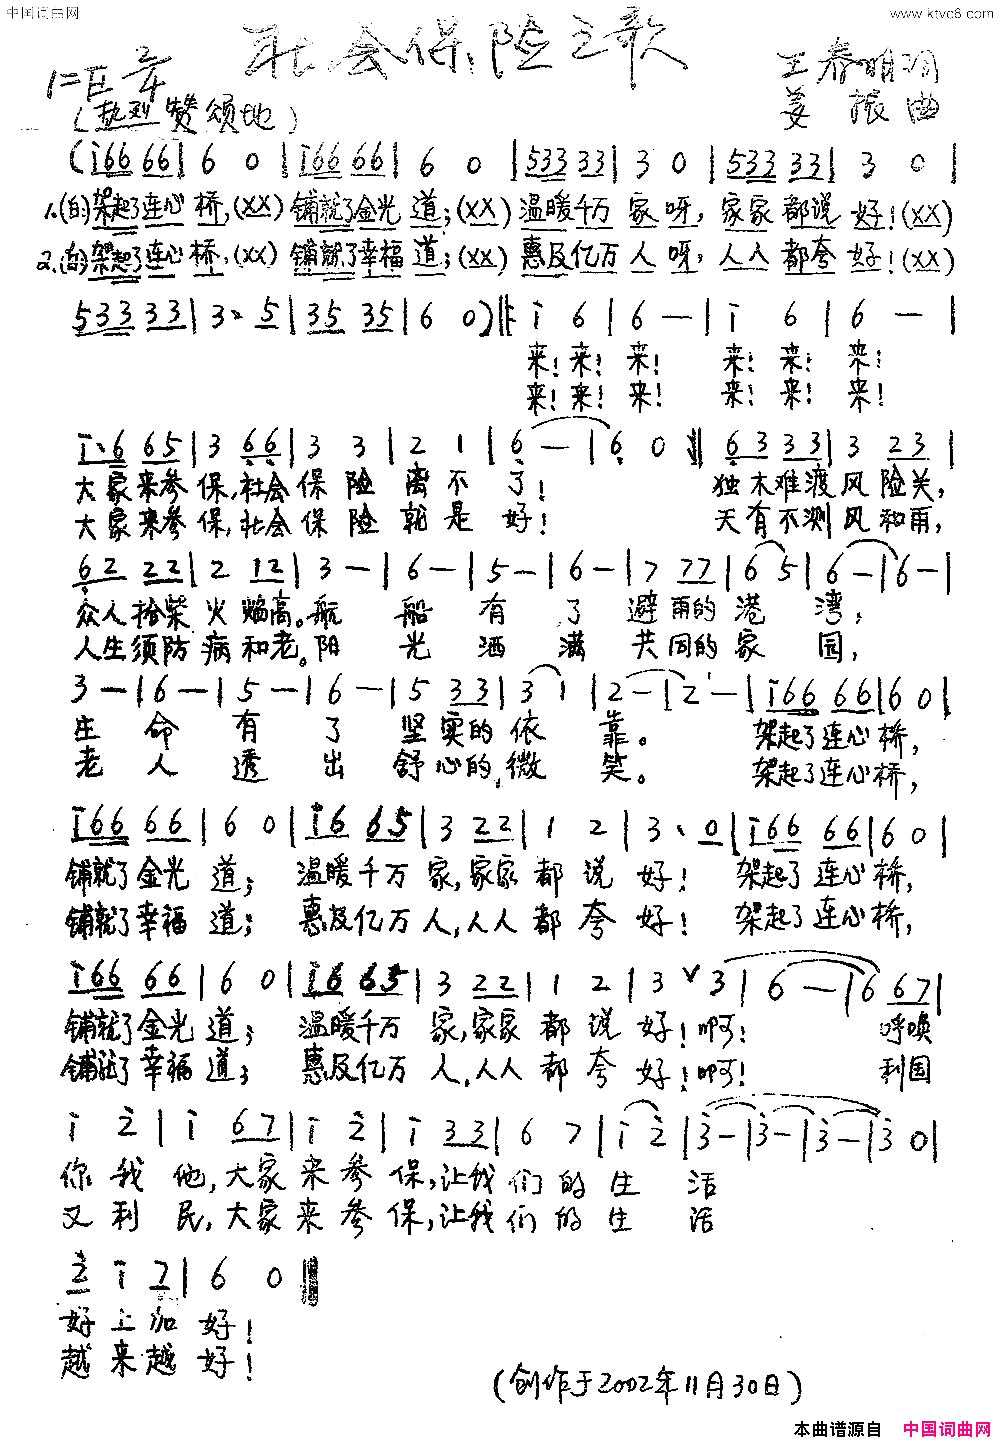 中国词曲网 www.ktvc8.com
社会保险之歌
1=E 2/4 王春明词
(热烈 赞颂地) 姜振曲
(i66 66 | 6 0 | i66 66 | 6 0 | 533 33 | 3 0 | 533 33 | 3 0 |
1.(白)架起了连心桥,(XX) 铺就了金光道;(XX) 温暖千万家呀,家家都说好!(XX)
2.(白)架起了连心桥,(XX) 铺就了幸福道;(XX) 惠及亿万人呀,人人都夸好!(XX)
533 33 | 3· 5 | 35 35 | 6 0) ‖: i 6 | 6 — | i 6 | 6 — |
来!来!来! 来!来!来!
来!来!来! 来!来!来!
i·6 65 | 3 66 | 3 3 | 2 1 | 6 — | 6 0 ‖ 6333 | 3 23 |
大家来参保,社会保险离不了! 独木难渡风险关,
大家来参保,社会保险就是好! 天有不测风和雨,
62 22 | 2 12 | 3 — | 6 — | 5 — | 6 — | 7 77 | 6 5 | 6 — | 6 — |
众人拾柴火焰高。航船有了避雨的港湾,
人生须防病和老。阳光洒满共同的家园,
3 — | 6 — | 5 — | 6 — | 5 33 | 3 1 | 2 — | 2 — | i66 66 | 6 0 |
生命有了坚实的依靠。 架起了连心桥,
老人透出舒心的微笑。 架起了连心桥,
i66 66 | 6 0 | i6 65 | 3 22 | 1 2 | 3· 0 | i66 66 | 6 0 |
铺就了金光道; 温暖千万家,家家都说好! 架起了连心桥,
铺就了幸福道; 惠及亿万人,人人都夸好! 架起了连心桥,
i66 66 | 6 0 | i6 65 | 3 22 | 1 2 | 3 ∨ 3 | 6 — | 6 67 |
铺就了金光道; 温暖千万家,家家都说好!啊! 呼唤
铺就了幸福道; 惠及亿万人,人人都夸好!啊! 利国
i 2 | i 67 | i 2 | i 33 | 6 7 | i 2 | 3 — | 3 — | 3 — | 3 0 |
你我他,大家来参保,让我们的生活
又利民,大家来参保,让我们的生活
2 i 7 | 6 0 ‖
好上加好!
越来越好!
(创作于2002年11月30日)
本曲谱源自 中国词曲网